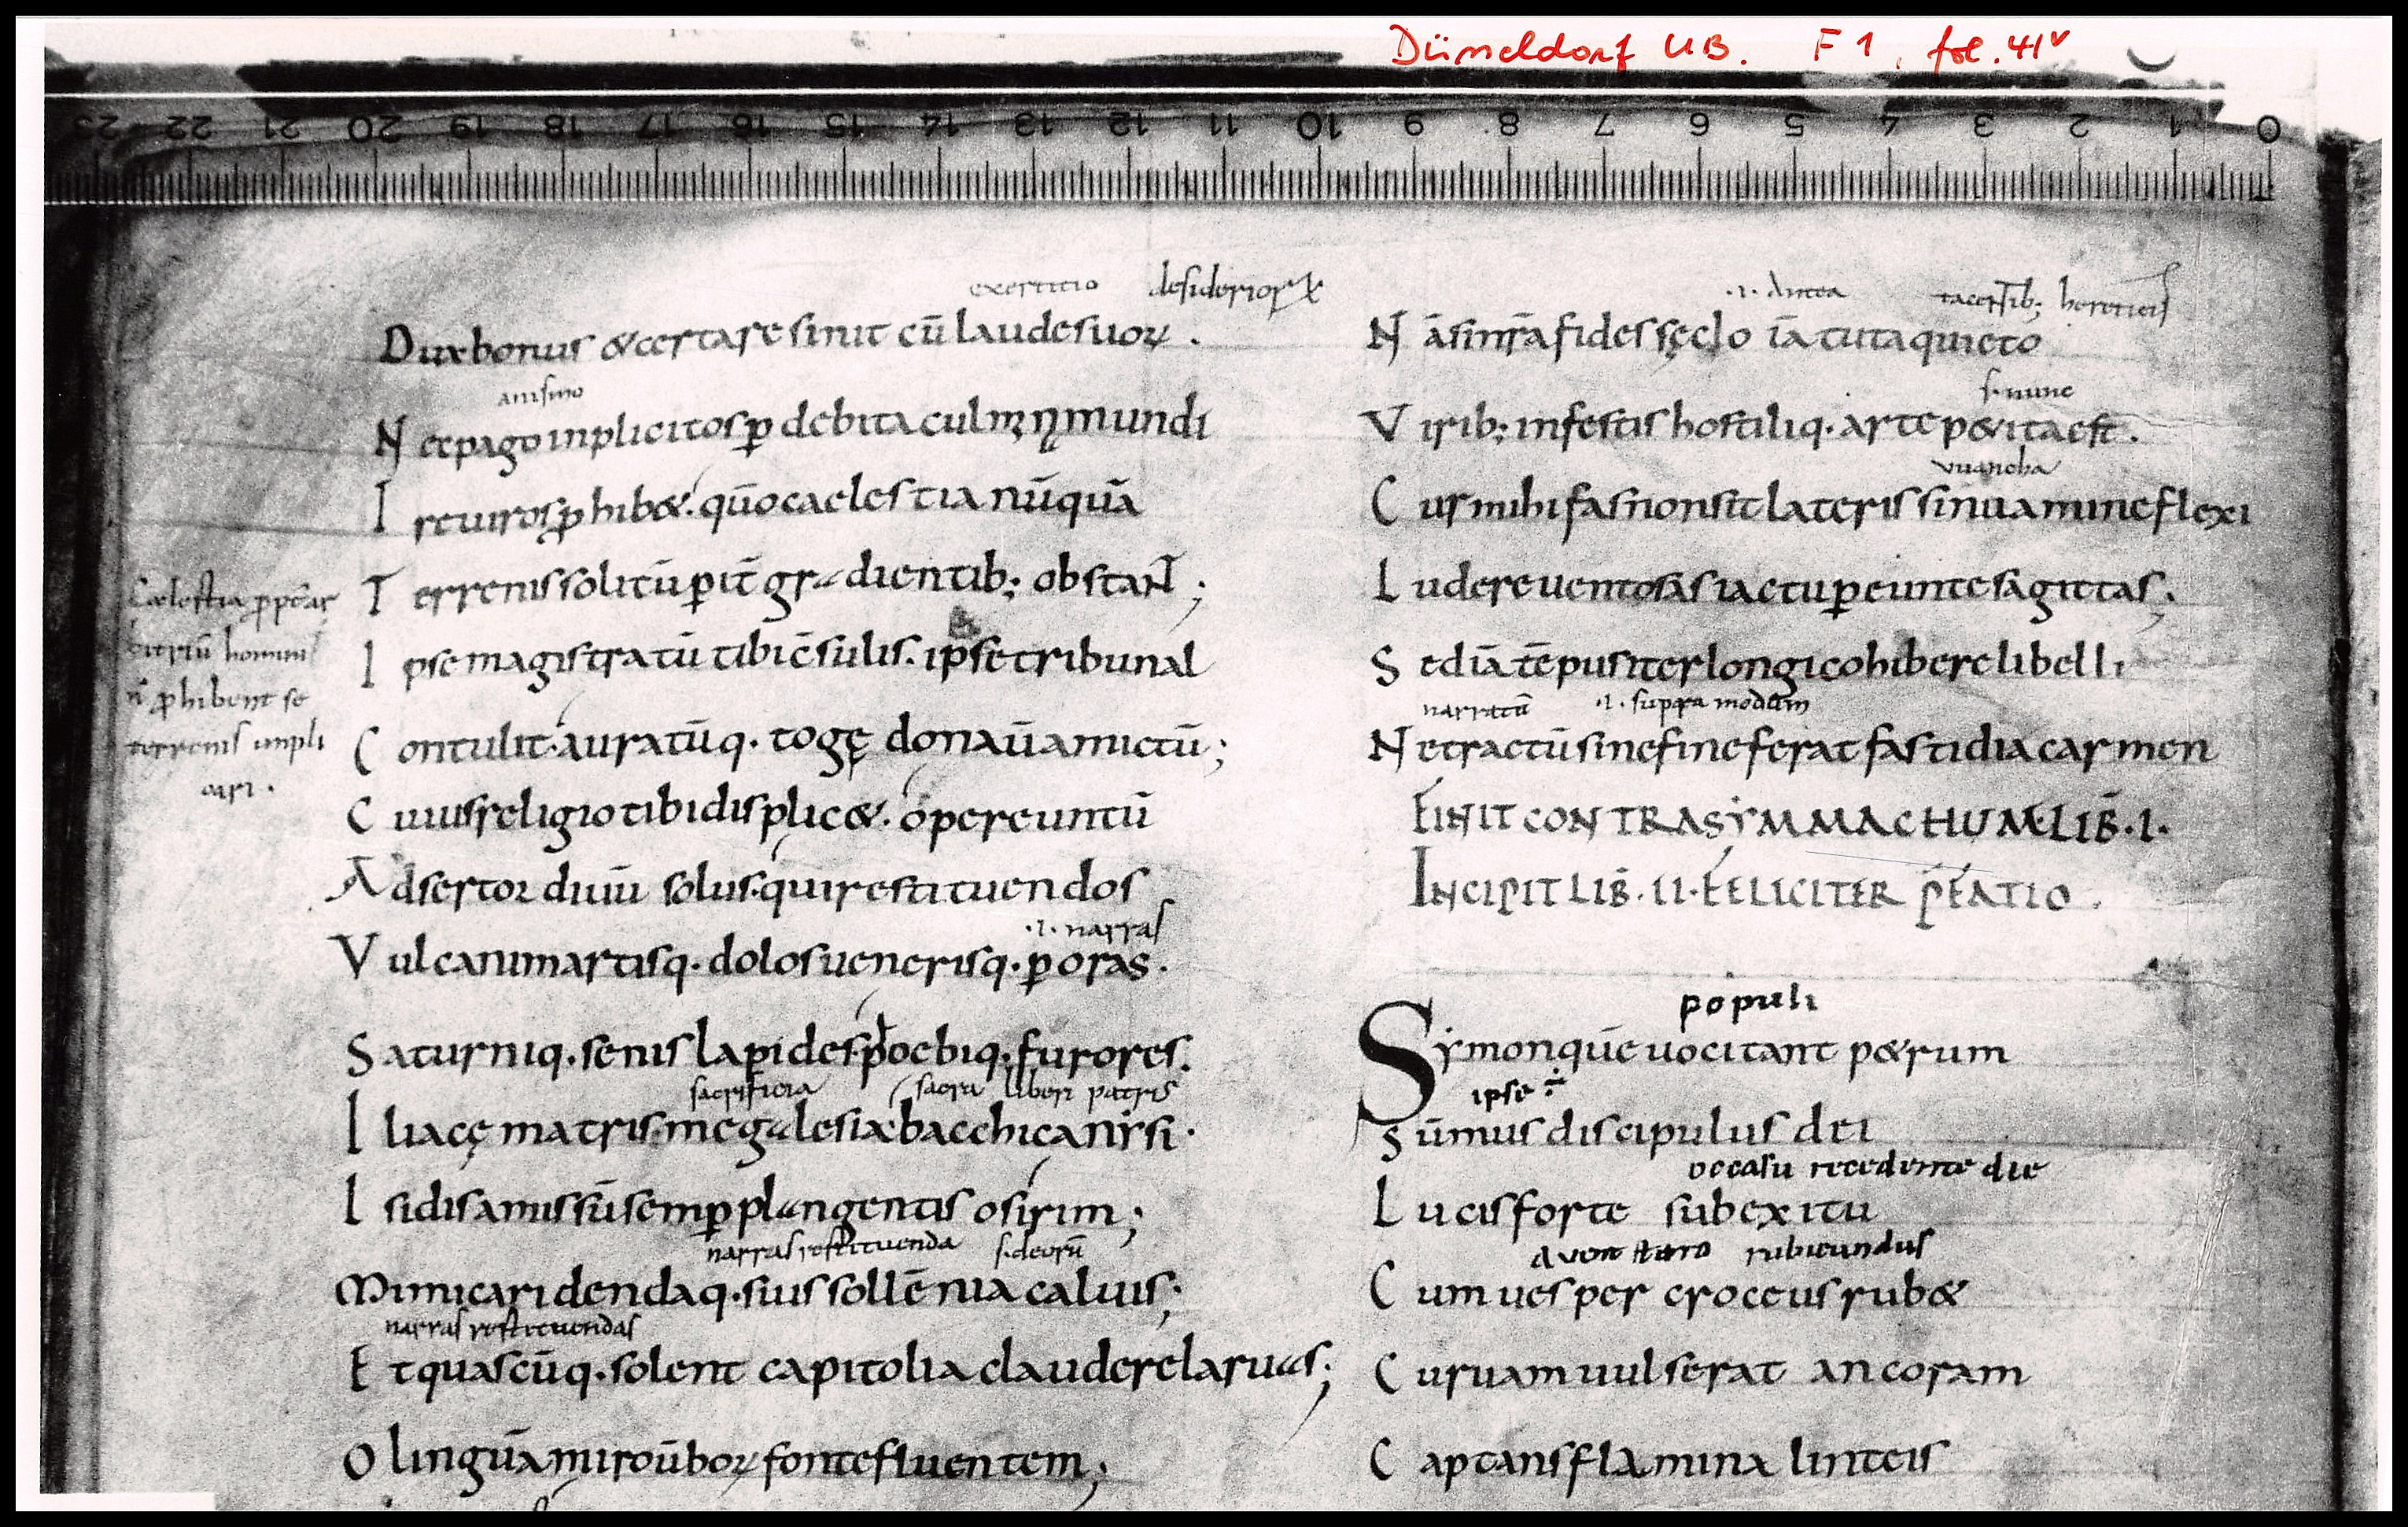 Düsseldorf UB. F 1, fol. 41v
23 22 21 20 19 18 17 16 15 14 13 12 11 10 9 8 7 6 5 4 3 2 1 0
exertitio desideriorꝝ
Dux bonus & certare sinit cū laude suoꝝ.
animo
N et pago inplicitos ꝑ debita culmꝫ nͥ mundi
I re uiros ꝓhib&. qūo caelestia nūquā
T errenis solitū ꝑ it̄ gradientib; obstaNT;
I pse magistratū tibi c̄sulis. ipse tribunal
C ontulit. auratūq. togę donauͥ amictū;
C uius religio tibi displic&. o pereuntū
A dsertor diuū solus. qui restituendos
.i. narras
V ulcani martisq. dolos uenerisq. ꝑoras.
S aturniq. senis lapides. phoebiq. furores.
sacrificia sacra liberi patris
I liacę matris. megalesia bacchica nysi.
I sidis amissū semꝑ plangentis osirim;
narras restituenda s. deorū
Mimica ridendaq. suis sollēnia caluis;
narras restituendas
E t quascūq. solent capitolia claudere laruas;
O linguā miro ūboꝝ fonte fluentem;
Caelestia ꝓpt̄ar
bitriū hominis
n̄ ꝓhibent se
terrenis impli
cari.
.i. Antea tacentib; hereticis
N ā si nr̄a fides sęclo iā tuta quieto
s. nunc
V irib; infestis hostiliq. arte p&ita est.
C ur mihi fas non sit lateris sinuamine flexi
L udere uentosas iactu ꝑeunte sagittas;
S ed iā tēpus iter longi cohibere libelli
narratū .i. supra modum
N e tractū sine fine ferat fastidia carmen
FINIT CONTRA SYMMACHUM. LIB̄. I.
INCIPIT LIB̄. II. FELICITER P̄FATIO.
populi
Symon quē uocitant p&rum
ipse ÷
S ūmus discipulus dei
occasu recedente die
L ucis forte sub exitu
rubicundus
C um uesper croceus rub&
C uruam uulserat ancoram
C aptans flamina linteis